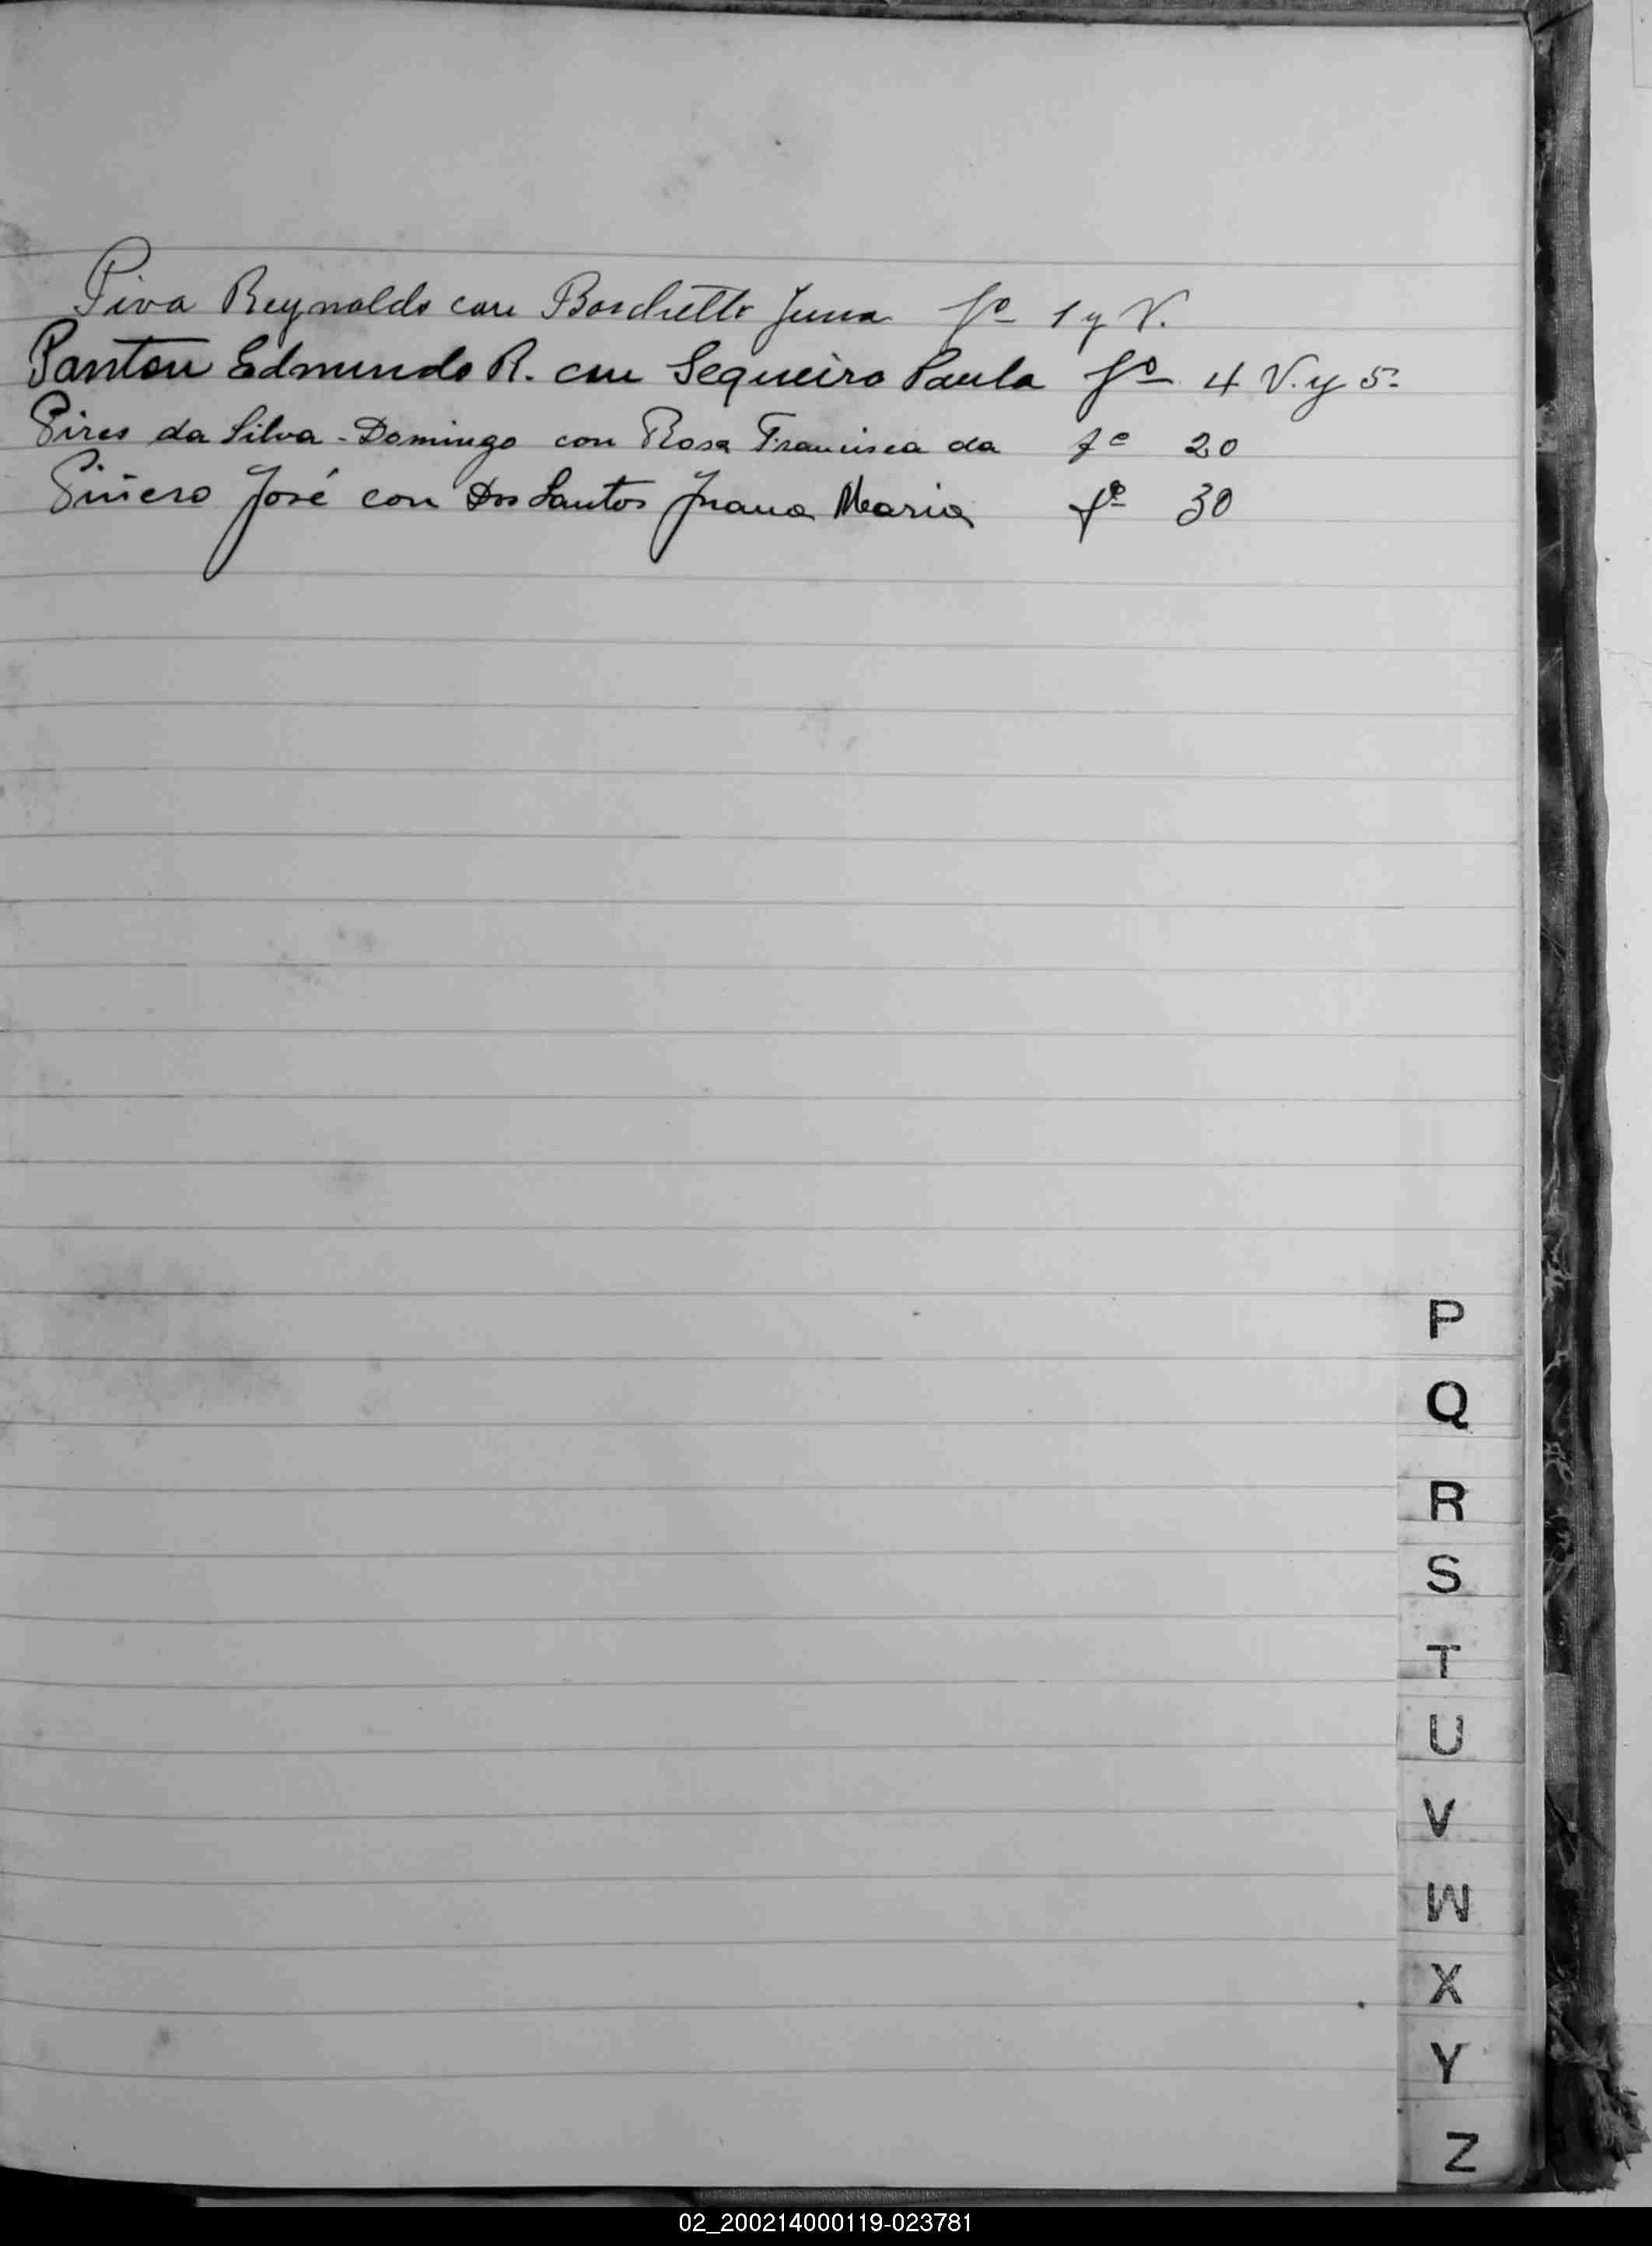 Piva Reynaldo con Boschetto Juna fº 1 y V.
Panton Edmundo R. con Sequeiro Paula fº 4 V. y 5.
Pires da Silva - Domingo con Rosa Francisca da fº 20
Piñero José con Dos Santos Juana Maria fº 30
P
Q
R
S
T
U
V
W
X
Y
Z
02_200214000119-023781